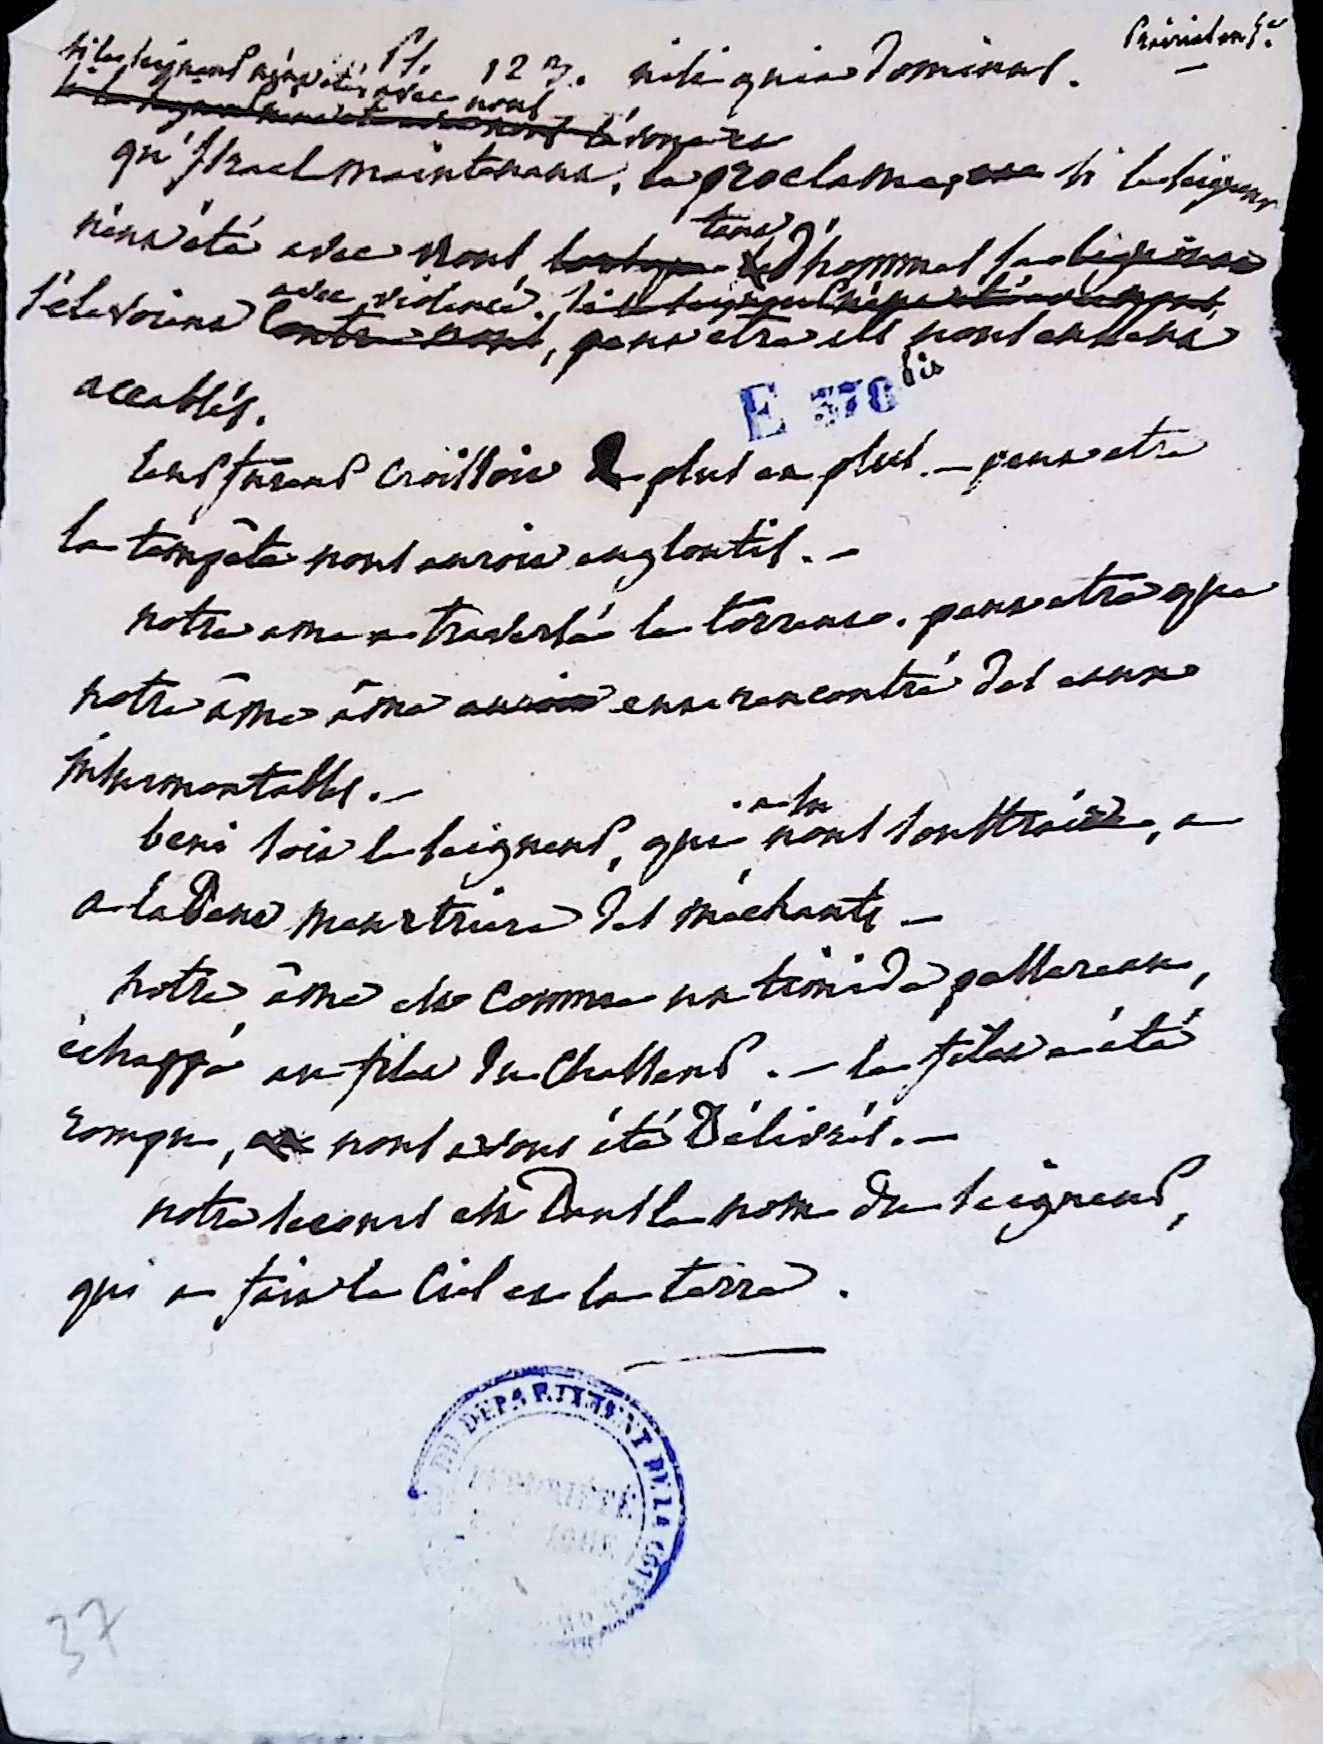 Prairial an 5.e
Ps. 123. nisi quia Dominus.
si le seigneur n'eut été avec nous
qu'Israel maintenant, le proclame, si le seigneur
n'eut été avec nous, tant d'hommes
s'élevoient avec violence contre nous, peut etre ils nous eussent
accablés.
E 378 bis
leurs fureurs croissoit de plus en plus. — peut etre
la tempête nous auroit engloutis. —
notre ame a traversé le torrent. peut etre que
notre âme âme auroit eut rencontré des eaux
insurmontables. —
beni soit le seigneur, qui nous a soustrait,
a la Dent meurtriere des méchants —
notre âme est comme un timide passereau,
échappé au filet du Chasseur. — le filet a été
rompu, et nous avons été Délivrés. —
notre secours est Dans le nom du seigneur,
qui a fait le Ciel et la terre.
DU DEPARTEMENT DE LA COTE-D'OR
37